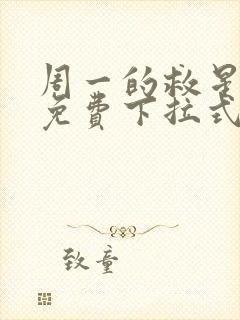 周一的救星
免费下拉式
致童